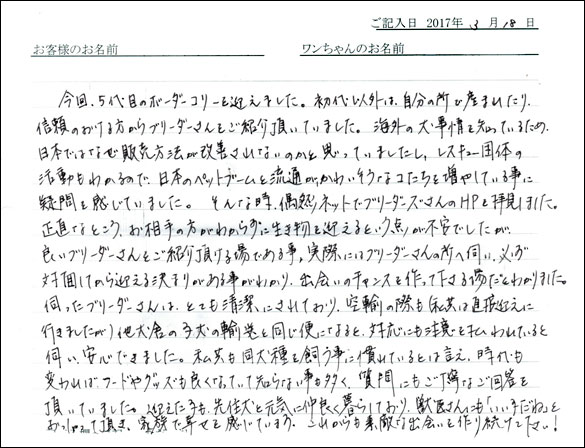 ご記入日 2017年 3 月 18 日
お客様のお名前 ワンちゃんのお名前
今回、5代目のボーダーコリーを迎えました。初代以外は、自分の所で産まれたり、
信頼のおける方からブリーダーさんをご紹介頂いていました。海外の犬事情を知っているため、
日本ではなぜ販売方法が改善されないのかと思っていましたし、レスキュー団体の
活動もわかるので、日本のペットブームと流通が、かわいそうなコたちを増やしている事に
疑問を感じていました。そんな時、偶然ネットでブリーダーズさんのHPを拝見しました。
正直なところ、お相手の方がわからずに生き物を迎えるという点が不安でしたが
良いブリーダーさんをご紹介頂ける場である事、実際にはブリーダーさんの所へ伺い、必ず
対面してから迎える決まりがある事がわかり、出会いのチャンスを作って下さる場だとわかりました。
伺ったブリーダーさんは、とても清潔にされており、空輸の際も(私共は直接迎えに
行きましたが)他犬舎の子犬の輸送と同じ便になると、対応にも注意を払われていると
伺い、安心できました。私共も同犬種を飼う事に慣れているとは言え、時代も
変われば、フードやグッズも良くなっていて知らない事も多く、質問にもご丁寧なご回答を
頂いていました。迎えた子も、先住犬と元気に仲良く暮らしており、獣医さんにも「いい子だね」と
おっしゃって頂き、家族で幸せを感じています。これからも素敵な出会いを作り続けて下さい!